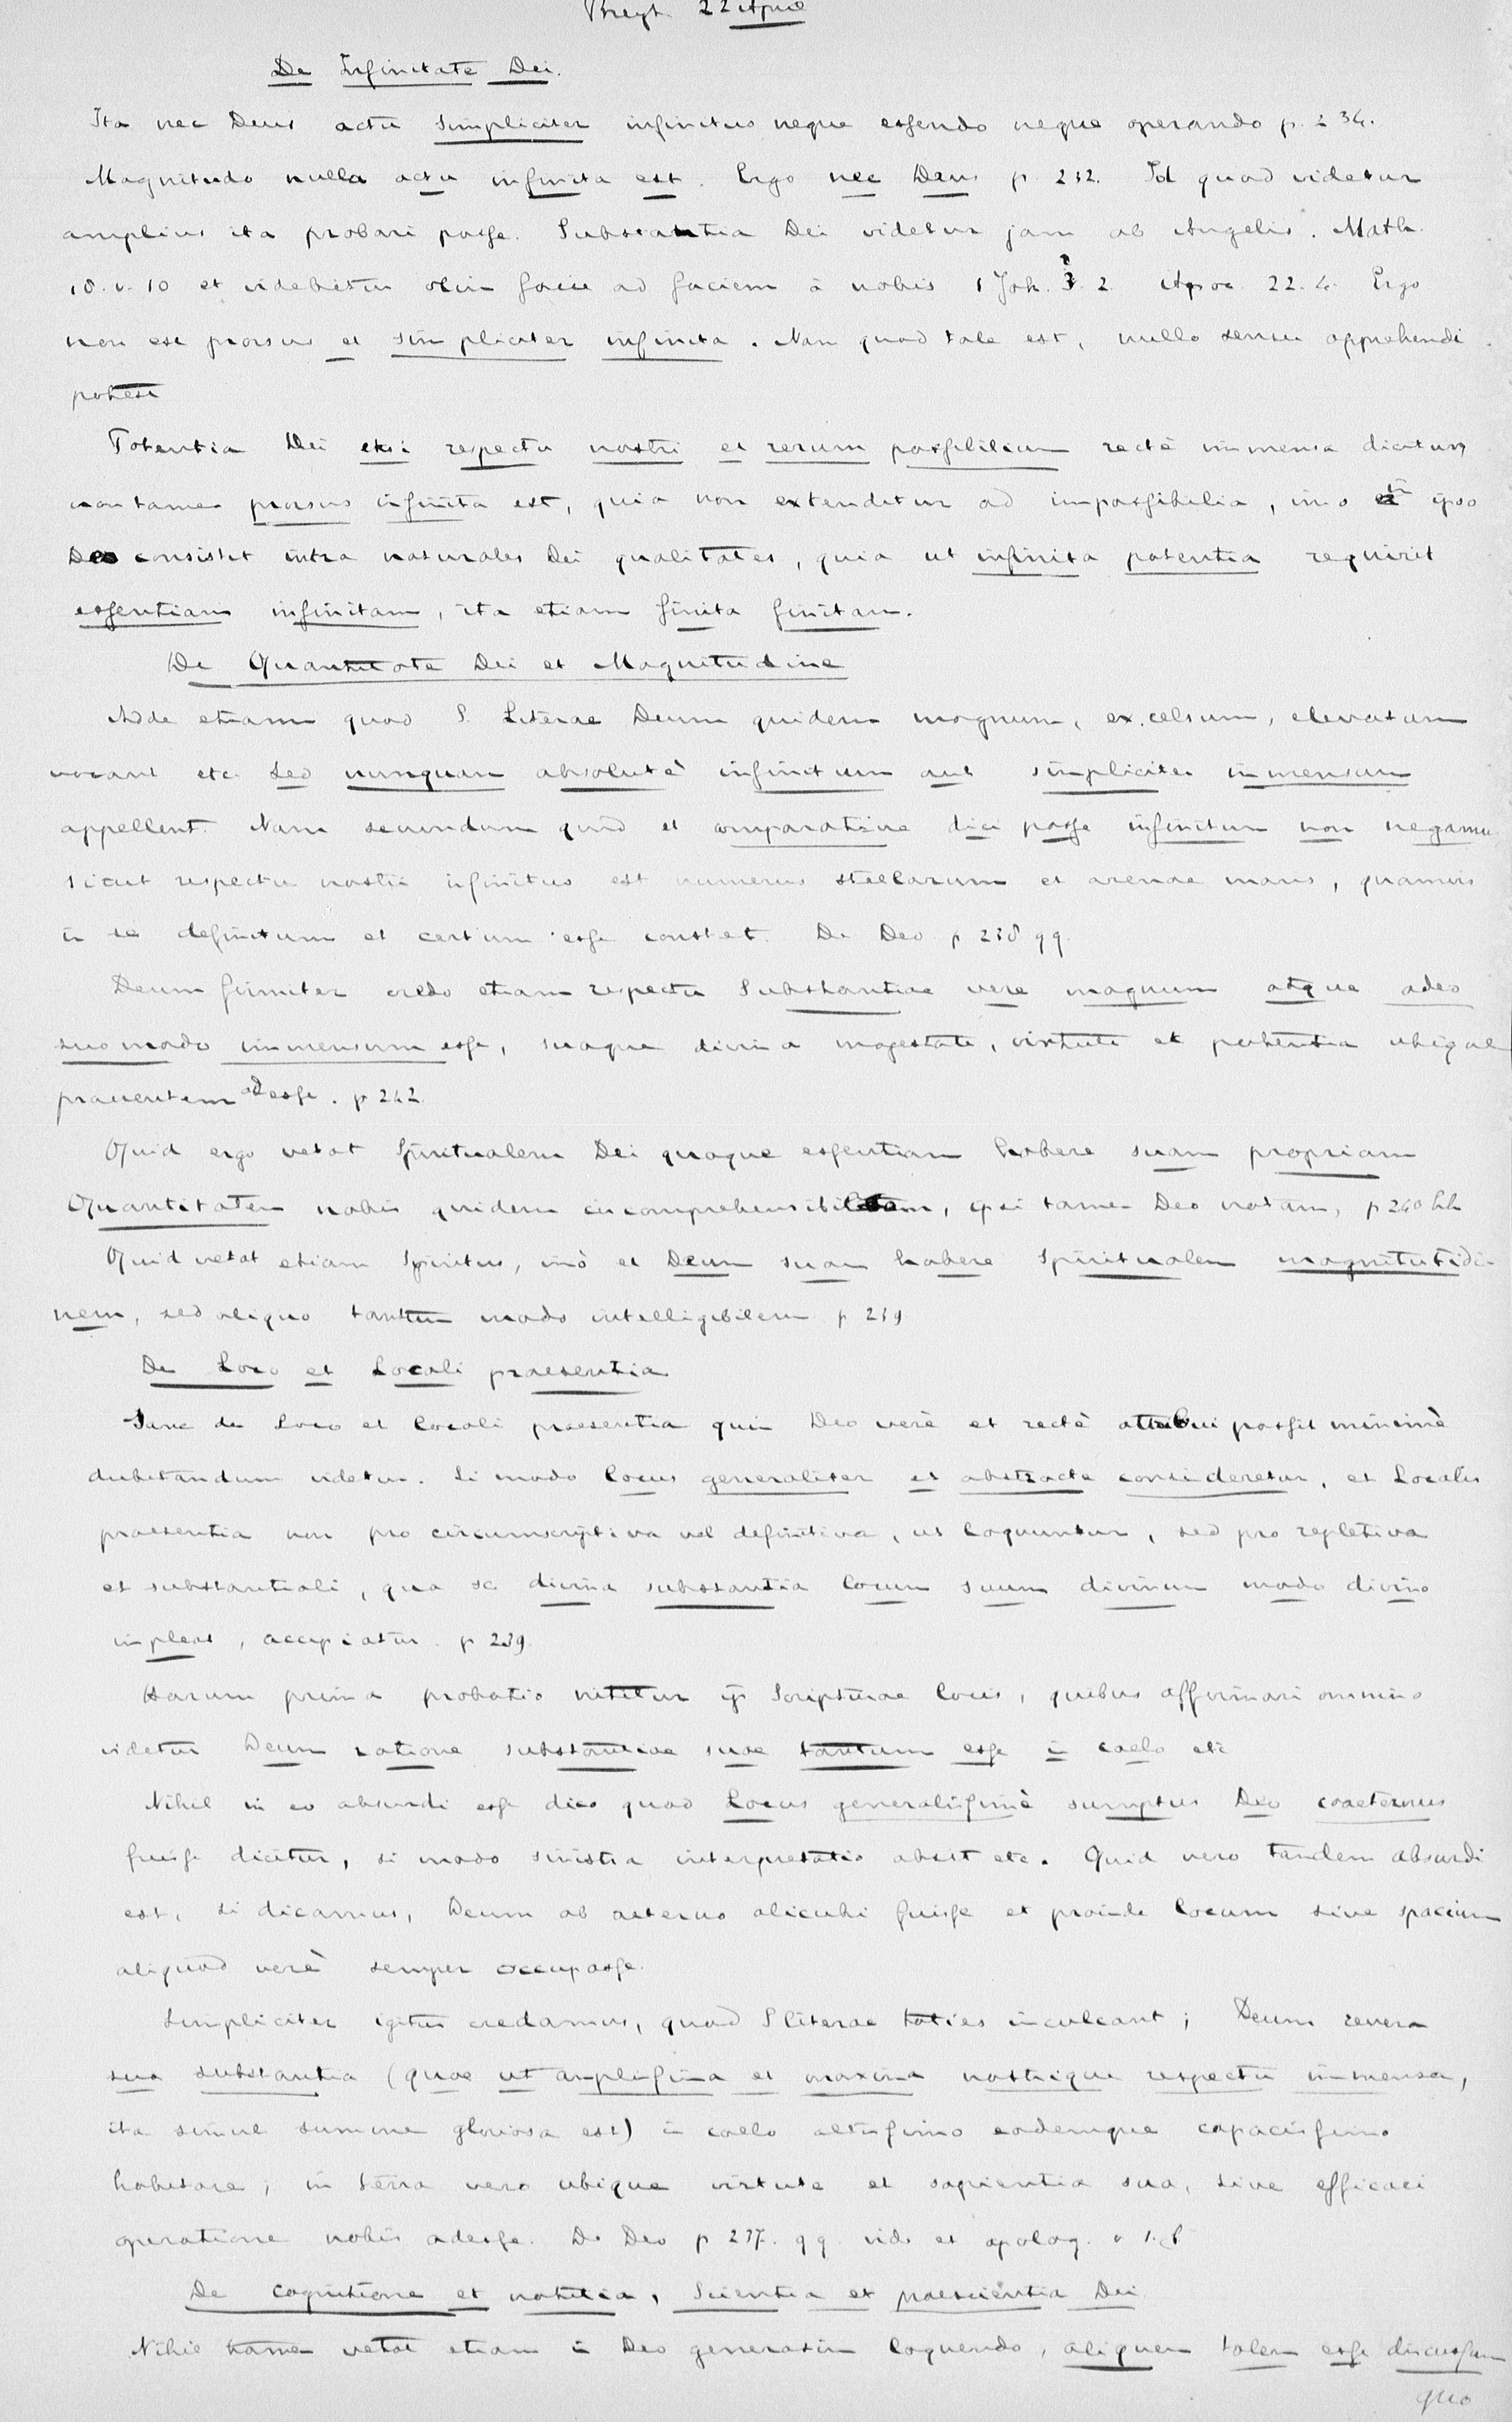 22 April
De Infinitate Dei.
Ita nec Deus actu simpliciter infinitus neque essendo neque operando p. 234.
Magnitudo nulla actu infinita est. Ergo nec Deus p. 232. Id quod videtur
amplius ita probari posse. Substantia Dei videtur jam ab Angelis. Math.
18. v. 10 et videbitur olim facie ad faciem à nobis 1 Joh. 3. 2. Apoc. 22. 4. Ergo
non est prorsus et simpliciter infinita. Nam quod tale est, nullo sensu apprehendi
potest
Potentia Dei etsi respectu nostri et rerum possibilium rectè immensa dicitur
non tamen prorsus infinita est, quia non extenditur ad impossibilia, imo in ipso
Deo consistit intra naturales Dei qualitates, quia ut infinita potentia requirit
essentiam infinitam, ita etiam finita finitam.
De Quantitate Dei et Magnitudine
Adde etiam quod S. Literae Deum quidem magnum, excelsum, elevatum
vocant etc. sed nunquam absolutè infinitum aut simpliciter immensum
appellent. Nam secundum quid et comparative dici posse infinitum non negamus
sicut respectu nostri infinitus est numerus stellarum et arenae maris, quamvis
in se definitum et certum esse constet. De Deo p 238 qq.
Deum firmiter credo etiam respectu Substantiae vere magnum atque adeo
suo modo immensum esse, suaque divina majestate, virtute et potentia ubique
praesentem adesse. p 242.
Quid ergo vetat Spiritualem Dei quoque essentiam habere suam propriam
Quantitatem nobis quidem incomprehensibilem, ipsi tamen Deo notam, p 240
Quid vetat etiam Spiritus, imò et Deum suam habere Spiritualem magnitutidi-
nem, sed aliquo tantum modo intelligibilem p 239
De Loco et Locali praesentia
Sane de Loco et locali praesentia quin Deo verè et rectè attribui possit minimè
dubitandum videtur. Si modo locus generaliter et abstracte consideretur, et Localis
praesentia non pro circumscriptiva vel definitiva, ut loquuntur, sed pro repletiva
et substantiali, qua sc divina substantia locum suum divinum modo divino
impleat, accipiatur. p 239.
Harum prima probatio nititur iis Scripturae locis, quibus affirmari omnino
videtur Deum ratione substantiae suae tantum esse in caelo etc
Nihil in eo absurdi esse dico quod Locus generalissimè sumptus Deo coaeternus
fuisse dicitur, si modo sinistra interpretatio absit etc. Quid vero tandem absurdi
est, si dicamus, Deum ab aeterno alicubi fuisse et proinde locum sive spacium
aliquod verè semper occupasse.
Simpliciter igitur credamus, quod S literae toties inculcant; Deum revera
sua substantia (quae ut amplissima et maxima nostrique respectu immensa,
ita simul summe gloriosa est) in coelo altissimo eodemque capacissimo
habitare; in terra vero ubique virtute et sapientia sua, sive efficaci
operatione nobis adesse. De Deo p 237. qq. vid. et apolog.
De cognitione et notitia, Scientia et praescientia Dei
Nihil tamen vetat etiam in Deo generatim loquendo, aliquem talem esse discursum
quo